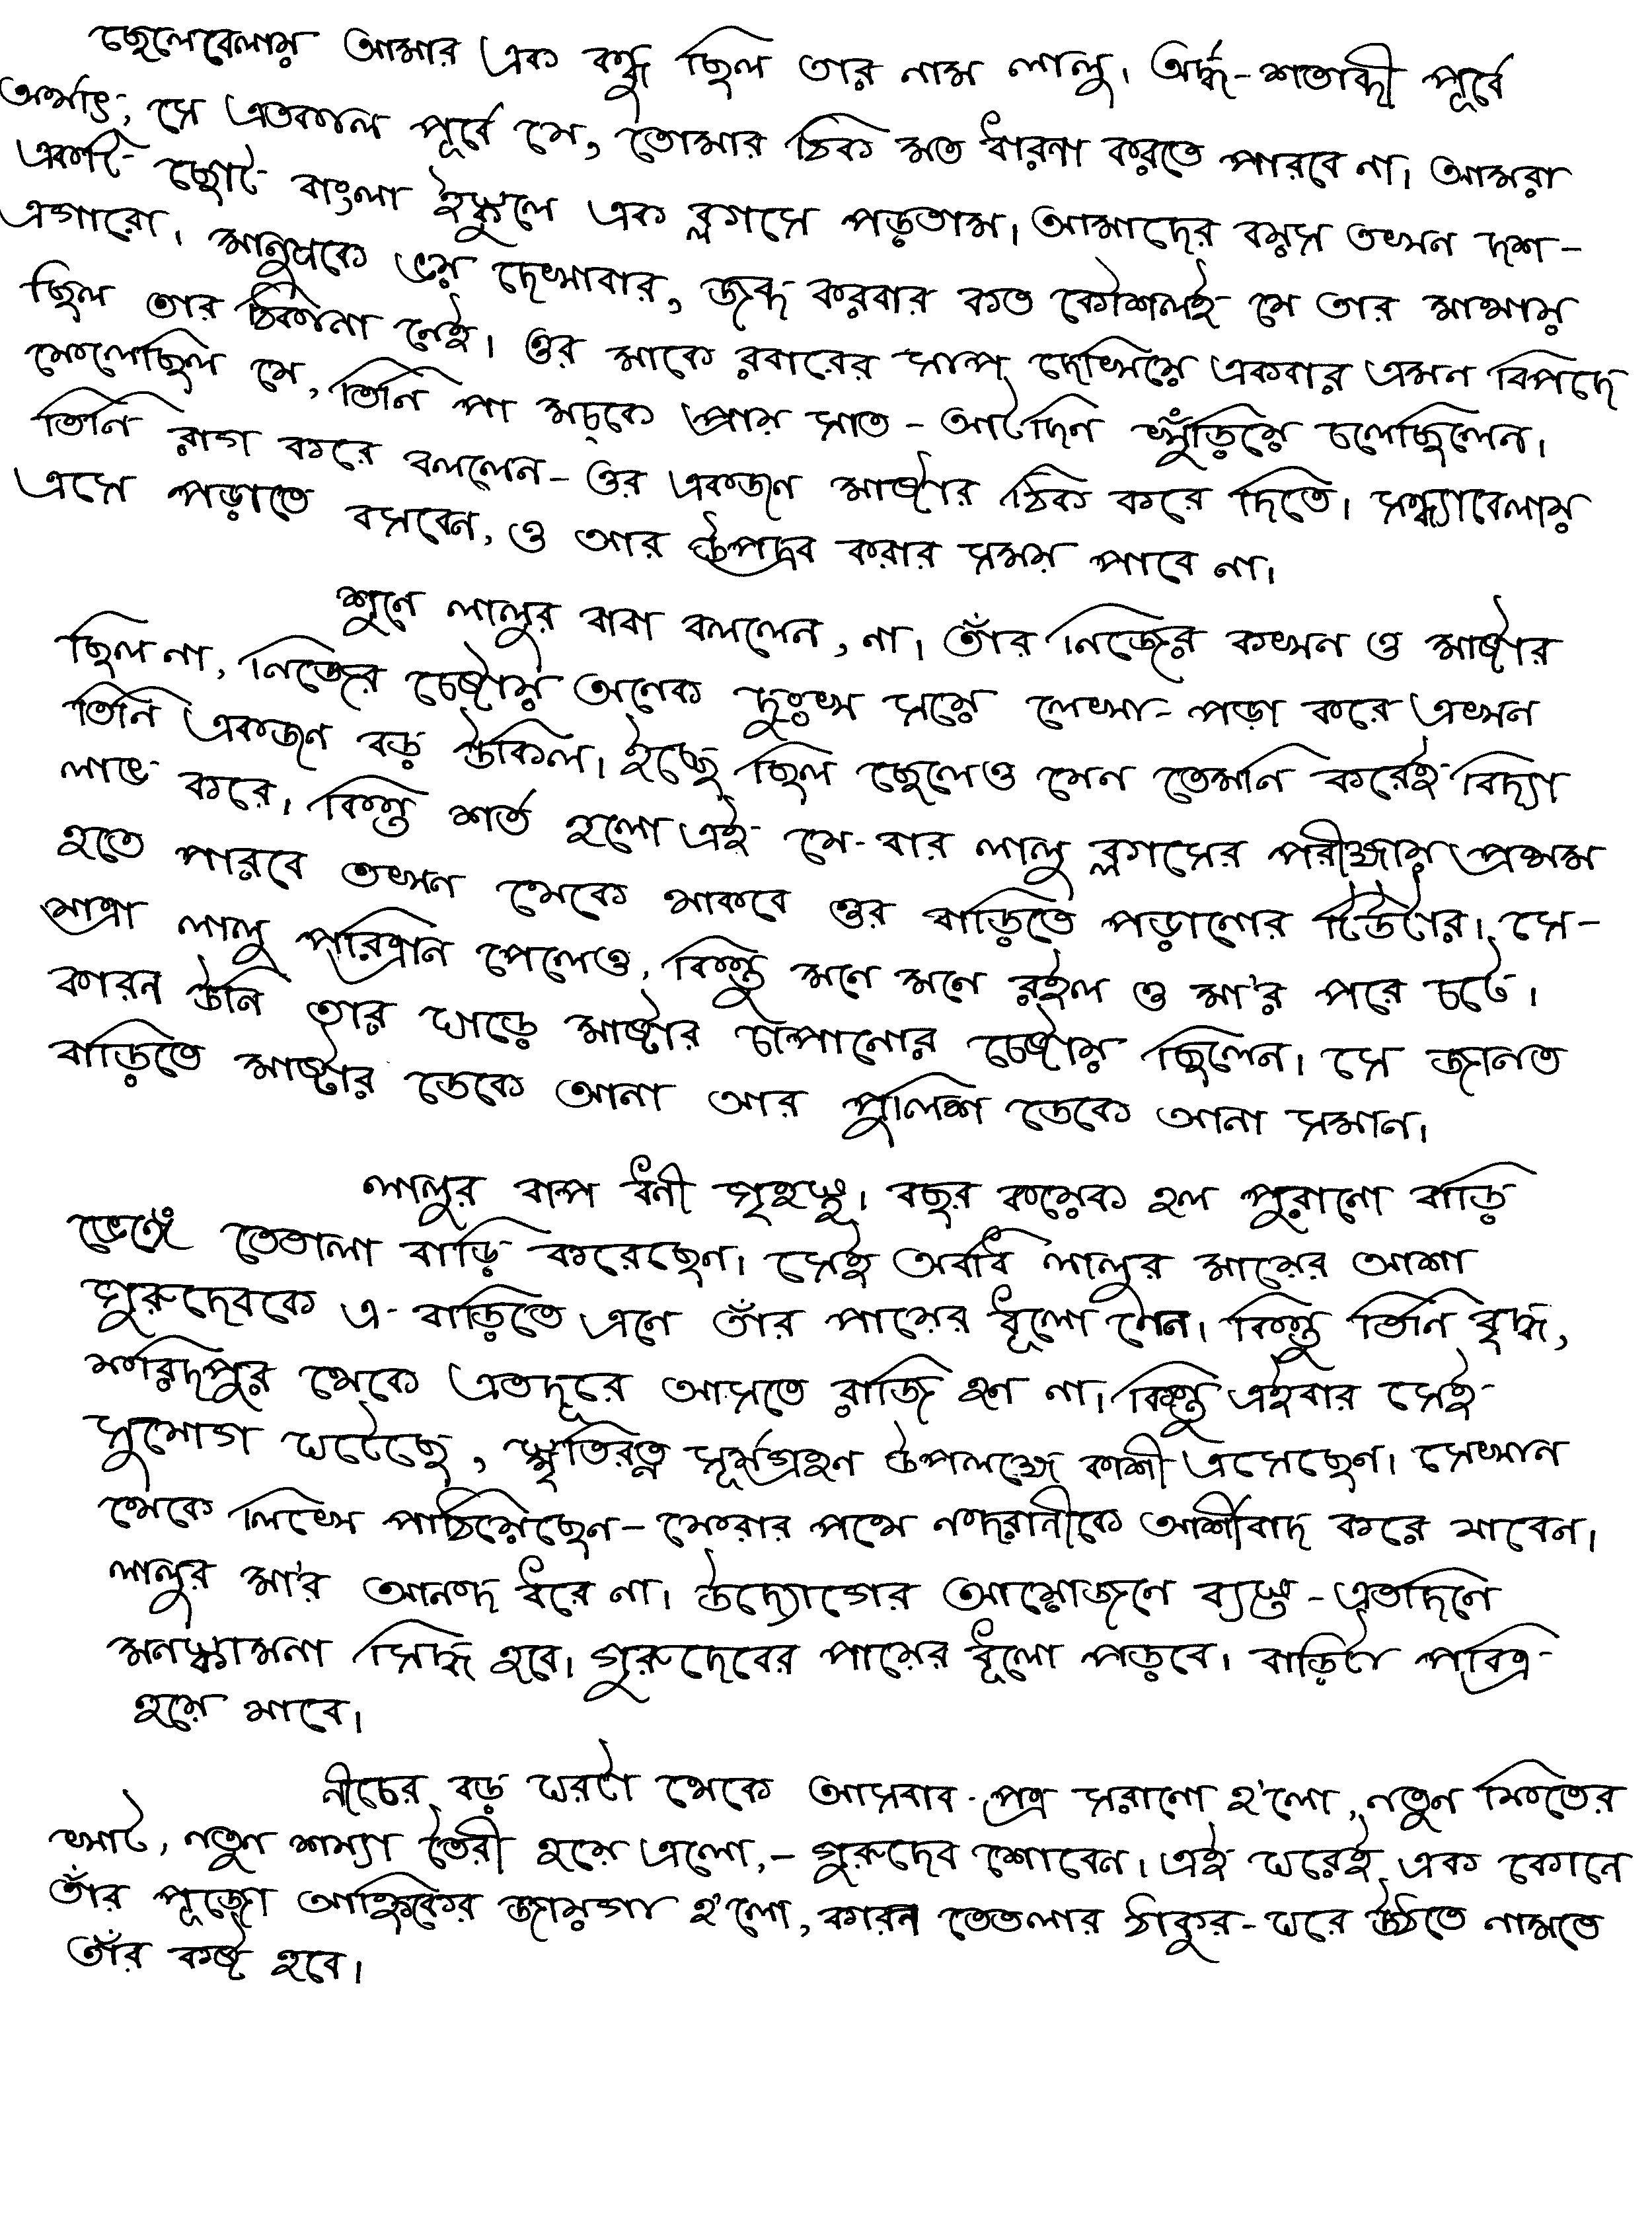 ছেলেবেলায় আমার এক বন্ধু ছিল তার নাম লালু। অর্দ্ধ-শতাব্দী পূর্বে
অর্থাৎ, সে এতকাল পূর্বে যে, তোমার ঠিক মত ধারনা করতে পারবে না। আমরা
একটি ছোট বাংলা ইস্কুলে এক ক্লাসে পড়তাম। আমাদের বয়স তখন দশ-
এগারো। মানুষকে ভয় দেখাবার, জব্দ করবার কত কৌশলই যে তার মাথায়
ছিল তার ঠিকানা নেই। ওর মাকে রবারের সাপ দেখিয়ে একবার এমন বিপদে
ফেলেছিল যে, তিনি পা মচ্‌কে প্রায় সাত-আটদিন খুঁড়িয়ে চলেছিলেন।
তিনি রাগ করে বললেন-ওর একজন মাষ্টার ঠিক করে দিতে। সন্ধ্যাবেলায়
এসে পড়াতে বসবেন, ও আর উপদ্রব করার সময় পাবে না।
শুনে লালুর বাবা বললেন, না। তাঁর নিজের কখন ও মাষ্টার
ছিল না, নিজের চেষ্টায় অনেক দুঃখ সয়ে লেখা-পড়া করে এখন
তিনি একজন বড় উকিল। ইচ্ছে ছিল ছেলেও যেন তেমনি করেই বিদ্যা
লাভ করে। কিন্তু শর্ত হলো এই যে-বার লালু ক্লাসের পরীক্ষায় প্রথম
হতে পারবে তখন থেকে থাকবে ওর বাড়িতে পড়ানোর টিউটার। সে-
যাত্রা লালু পরিত্রান পেলেও, কিন্তু মনে মনে রইল ও মা'র পরে চটে।
কারন উনি তার ঘাড়ে মাষ্টার চাপানোর চেষ্টায় ছিলেন। সে জানত
বাড়িতে মাষ্টার ডেকে আনা আর পুলিশ ডেকে আনা সমান।
লালুর বাপ ধনী গৃহস্থ। বছর কয়েক হল পুরানো বাড়ি
ভেঙ্গে তেতালা বাড়ি করেছেন। সেই অবধি লালুর মায়ের আশা
গুরুদেবকে এ-বাড়িতে এনে তাঁর পায়ের ধূলো নেন। কিন্তু তিনি বৃদ্ধ,
ফরিদপুর থেকে এতদূরে আসতে রাজি হন না। কিন্তু এইবার সেই
সুযোগ ঘটেছে, স্মৃতিরত্ন সূর্যগ্রহণ উপলক্ষে কাশী এসেছেন। সেখান
থেকে লিখে পাঠিয়েছেন-ফেরার পথে নন্দরানীকে আর্শীবাদ করে যাবেন।
লালুর মা'র আনন্দ ধরে না। উদ্যোগের আয়োজনে ব্যস্ত-এতদিনে
মনস্কামনা সিদ্ধ হবে। গুরুদেবের পায়ের ধূলো পড়বে। বাড়িটা পবিত্র
হয়ে যাবে।
নীচের বড় ঘরটা থেকে আসবাব-পত্র সরানো হ'লো, নতুন ফিতের
খাট, নতুন শয্যা তৈরী হয়ে এলো,- গুরুদেব শোবেন। এই ঘরেই এক কোনে
তাঁর পূজো আহ্নিকের জায়গা হ'লো, কারন তেতলার ঠাকুর-ঘরে উঠতে নামতে
তাঁর কষ্ট হবে।